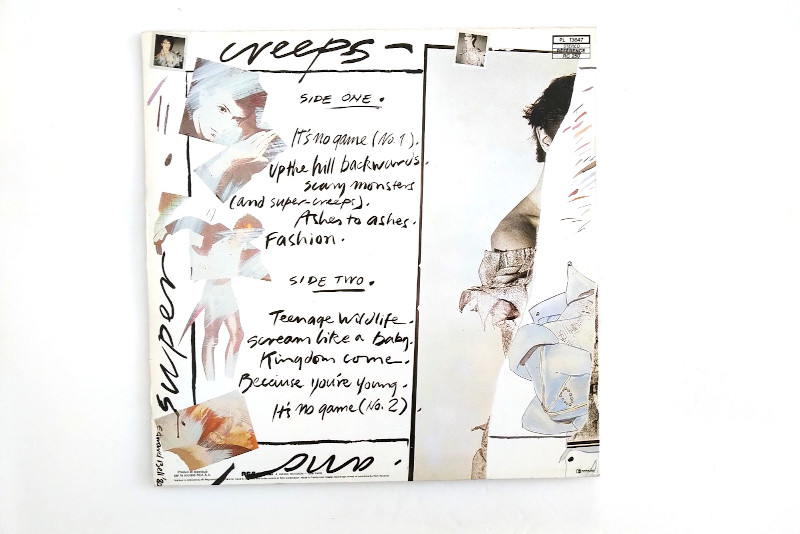 creeps
PL 13647
STEREO
REFERENCE
RC 250
SIDE ONE.
It's no game (No. 1).
Up the hill backwards.
scary monsters
(and super-creeps).
Ashes to ashes.
Fashion.
SIDE TWO.
Teenage Wildlife.
scream like a baby.
Kingdom come.
Because you're young.
It's no game (No. 2).
super
and
Edward Bell '80
RCA